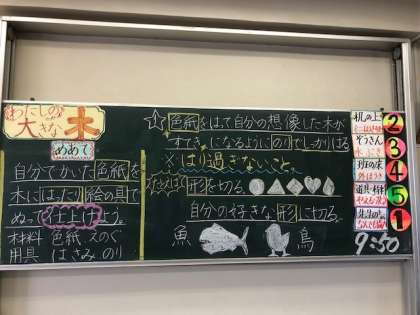 わたしの
大きな木
めあて
自分でかいた色紙を
木にはったり絵の具で
ぬって仕上げよう。
材料 色紙 えのぐ
用具 はさみ のり
色紙をはって自分の想像した木が
すてきになるようにのりでしっかりはる
※はり過ぎないこと。
形を切る。
自分の好きな形に切る。
魚 鳥
机の上
2
ぞうきん
3
4
道具・材料
5
1
9:50